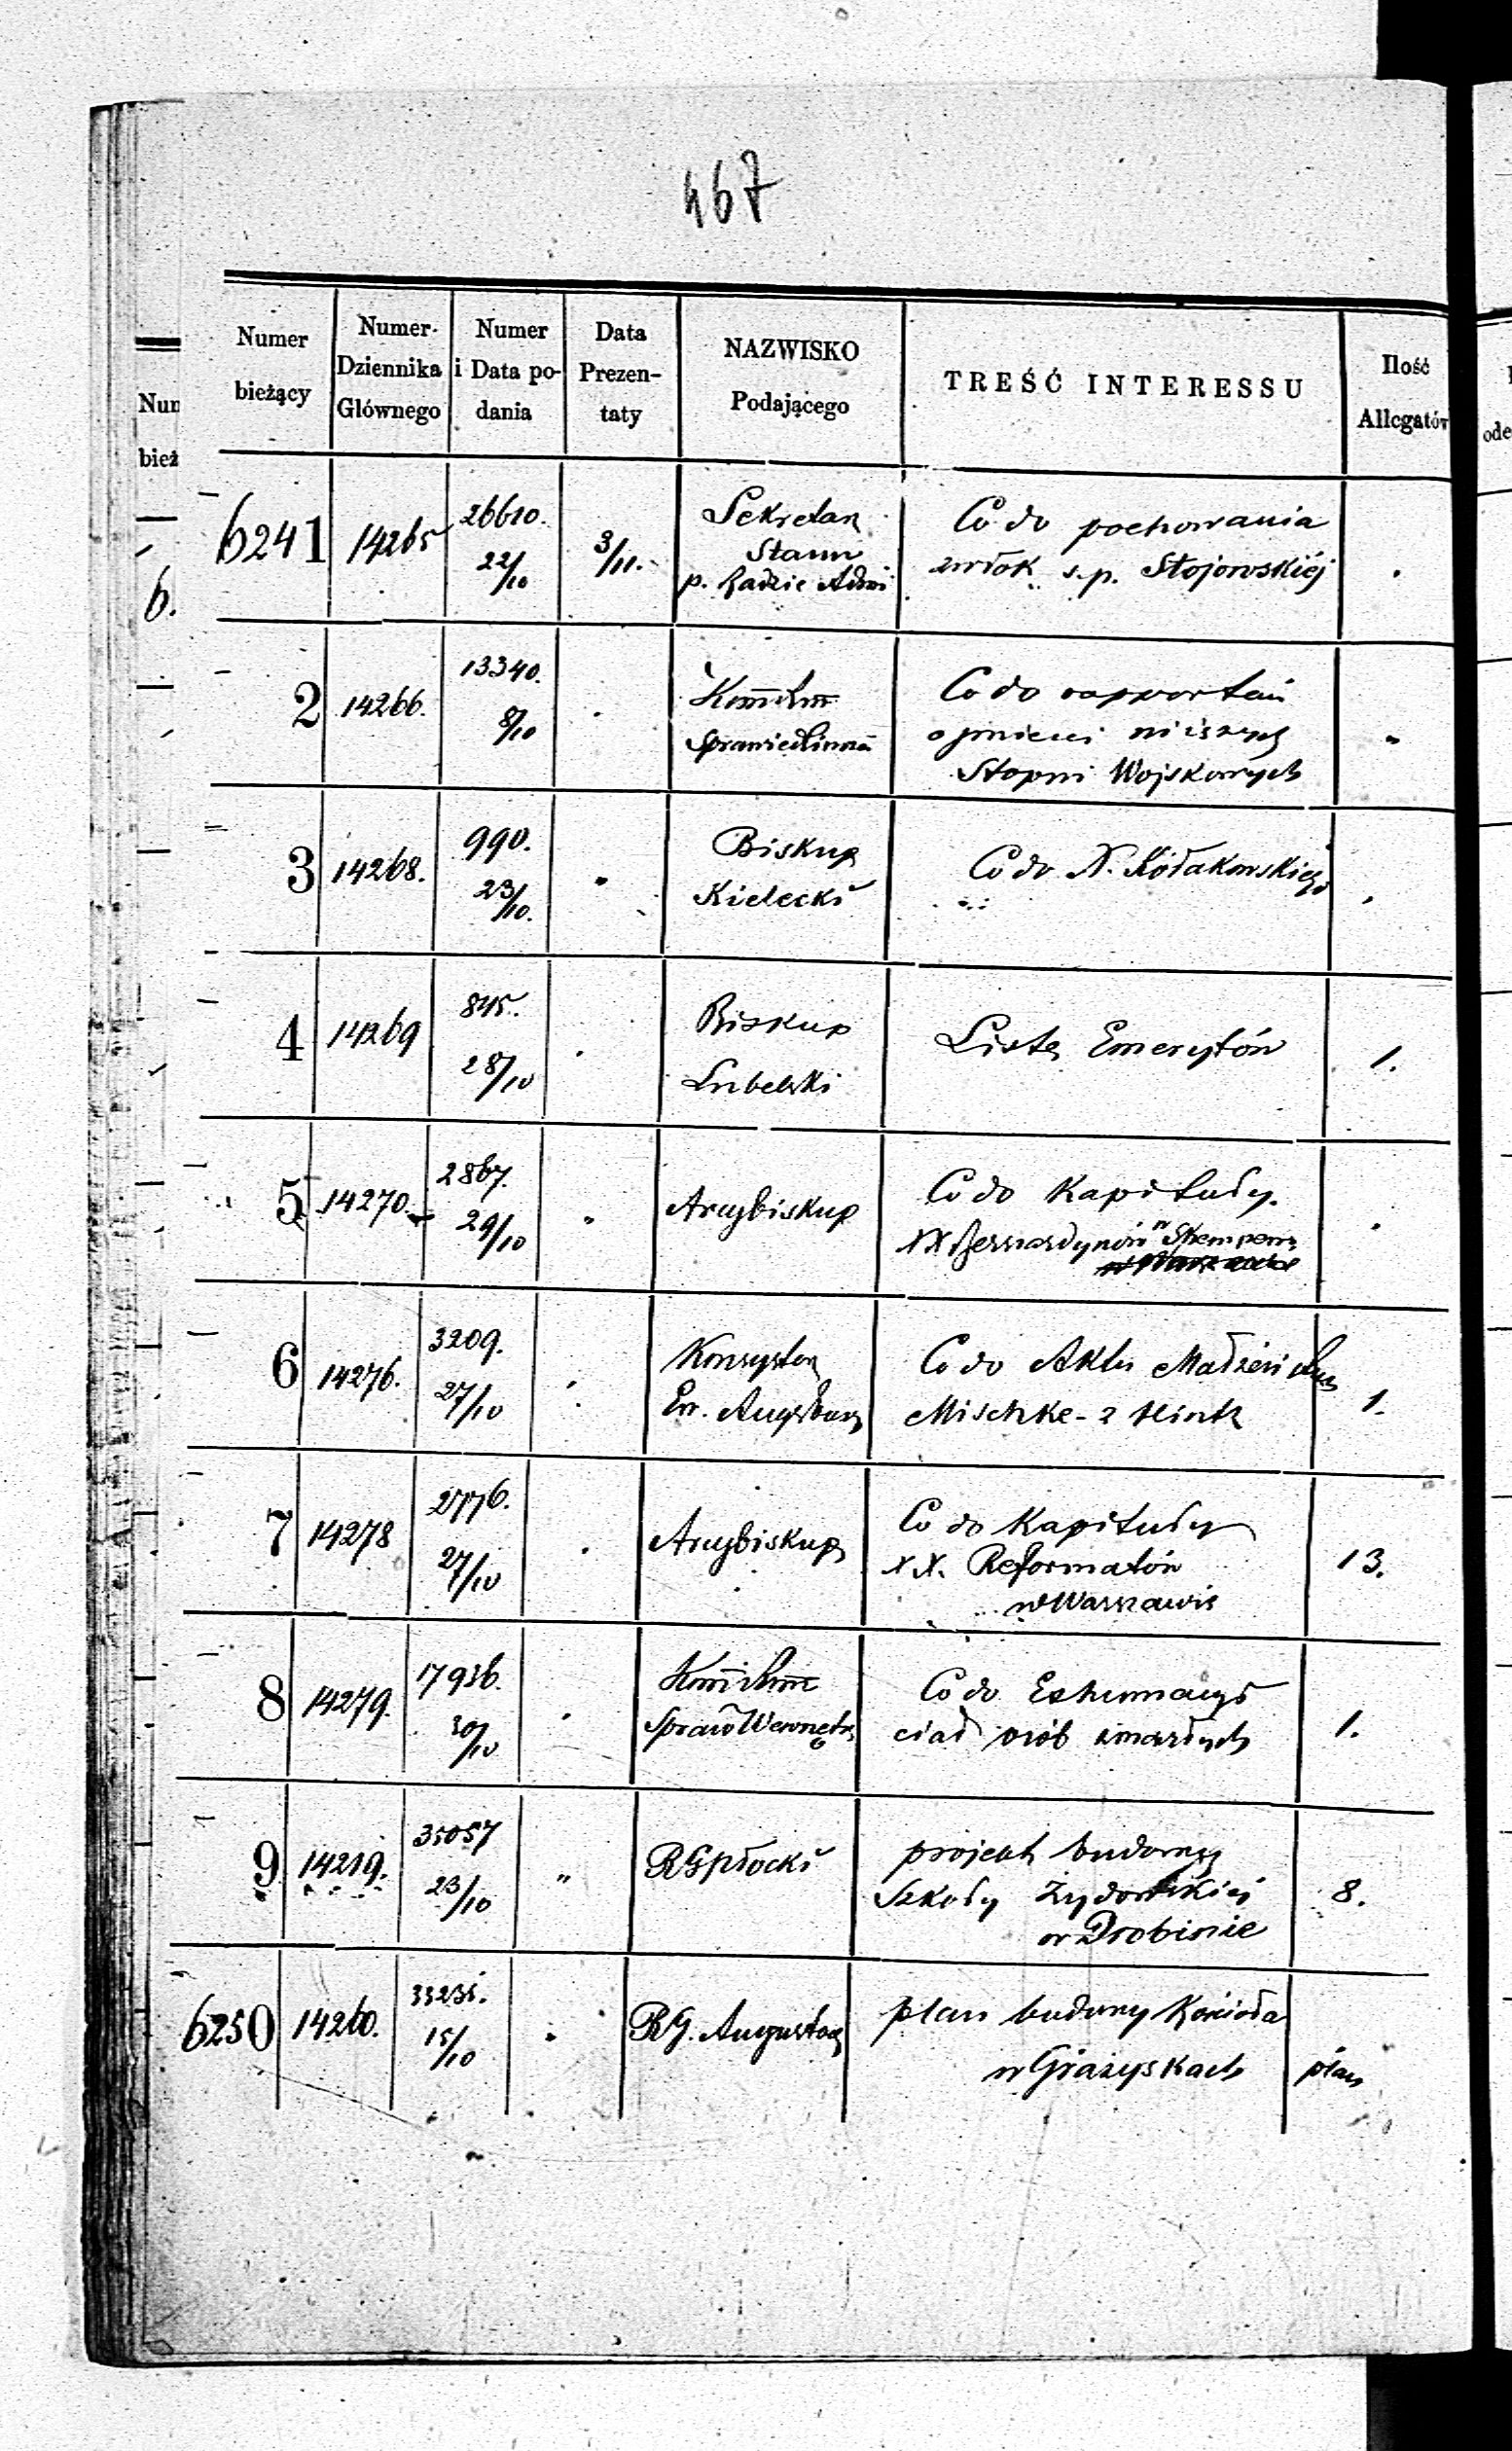 467
Numer bieżący
Numer Dziennika Głównego
Numer i Data podania
Data Prezentaty
NAZWISKO Podającego
TREŚĆ INTERESSU
Ilość Allegatów
6241 14265 26610. 22/10 3/11.
Sekretarz
Stanu
p. Radzie Admi
Co do pochowania
zwłok s.p. Stojowskiéj
2 14266. 13340. 8/10
Sprawiedliwoś
Co do
niższych
Stopni Wojskowych "
3 14268. 990. 23/10. "
Biskup
Kielecki
Co do X. Kołakowskiego
4 14269 845. 28/10
Biskup
Lubelski
Listę Emerytów 1.
5 14270. 2867. 29/10 "
Arcybiskup
Co do Kapituły.
XX Bernardynów w
6 14276. 3209. 27/10
Konsystorz
Ew. Augsburg
Co do Aktu
Mischke - z Hintz 1.
7 14278 2776. 27/10
Arcybiskup
Co do Kapituły
XX. Reformatów
w Warszawie 13.
8 14279. 17936. 30/10
Spraw Wewnętr
Co do Exhumacyi
ciał osób zmarłych 1.
9 14219. 35057 23/10 "
RG Płocki
projekt budowy
Szkoły Żydowskiej
w Drobinie 8.
6250 14260. 33235. 15/10
RG. Augustow
plan budowy Kościoła
w Grażyskach plan
Num
bież
6.